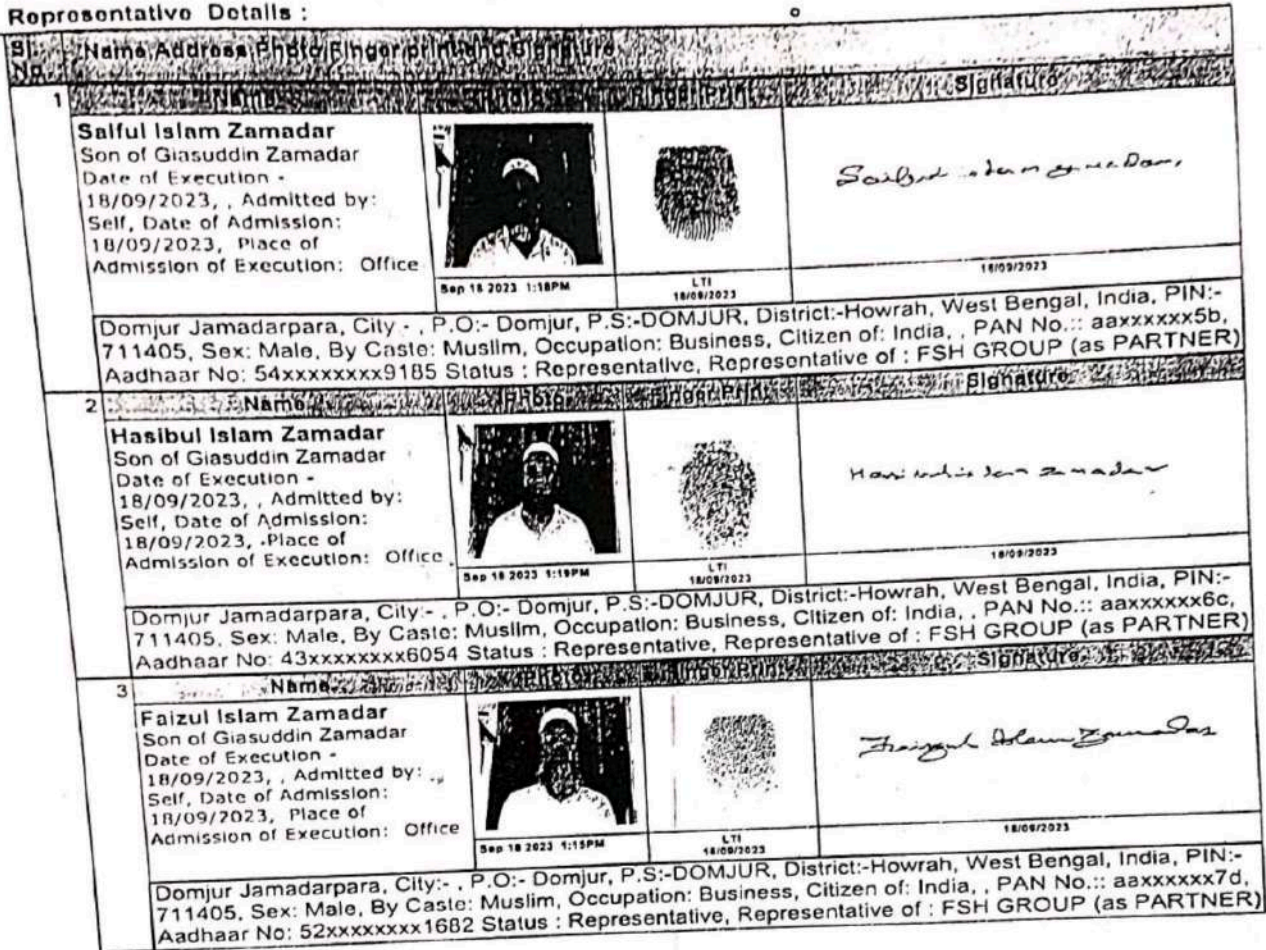 Representative Details :
Sl No. Name, Address, Photo, Finger print and Signature
1 Name Photo Finger Print Signature
Saiful Islam Zamadar
Son of Giasuddin Zamadar
Date of Execution -
18/09/2023, , Admitted by:
Self, Date of Admission:
18/09/2023, Place of
Admission of Execution: Office
Sep 18 2023 1:18PM LTI 18/09/2023 18/09/2023
Domjur Jamadarpara, City:- , P.O:- Domjur, P.S:-DOMJUR, District:-Howrah, West Bengal, India, PIN:-
711405, Sex: Male, By Caste: Muslim, Occupation: Business, Citizen of: India, , PAN No.:: aaxxxxxx5b,
Aadhaar No: 54xxxxxxxx9185 Status : Representative, Representative of : FSH GROUP (as PARTNER)
2 Name Photo Finger Print Signature
Hasibul Islam Zamadar
Son of Giasuddin Zamadar
Date of Execution -
18/09/2023, , Admitted by:
Self, Date of Admission:
18/09/2023, Place of
Admission of Execution: Office
Sep 18 2023 1:19PM LTI 18/09/2023 18/09/2023
Domjur Jamadarpara, City:- , P.O:- Domjur, P.S:-DOMJUR, District:-Howrah, West Bengal, India, PIN:-
711405, Sex: Male, By Caste: Muslim, Occupation: Business, Citizen of: India, , PAN No.:: aaxxxxxx6c,
Aadhaar No: 43xxxxxxxx6054 Status : Representative, Representative of : FSH GROUP (as PARTNER)
3 Name Photo Finger Print Signature
Faizul Islam Zamadar
Son of Giasuddin Zamadar
Date of Execution -
18/09/2023, , Admitted by:
Self, Date of Admission:
18/09/2023, Place of
Admission of Execution: Office
Faizul Islam Zamadar
Sep 18 2023 1:15PM LTI 18/09/2023 18/09/2023
Domjur Jamadarpara, City:- , P.O:- Domjur, P.S:-DOMJUR, District:-Howrah, West Bengal, India, PIN:-
711405, Sex: Male, By Caste: Muslim, Occupation: Business, Citizen of: India, , PAN No.:: aaxxxxxx7d,
Aadhaar No: 52xxxxxxxx1682 Status : Representative, Representative of : FSH GROUP (as PARTNER)